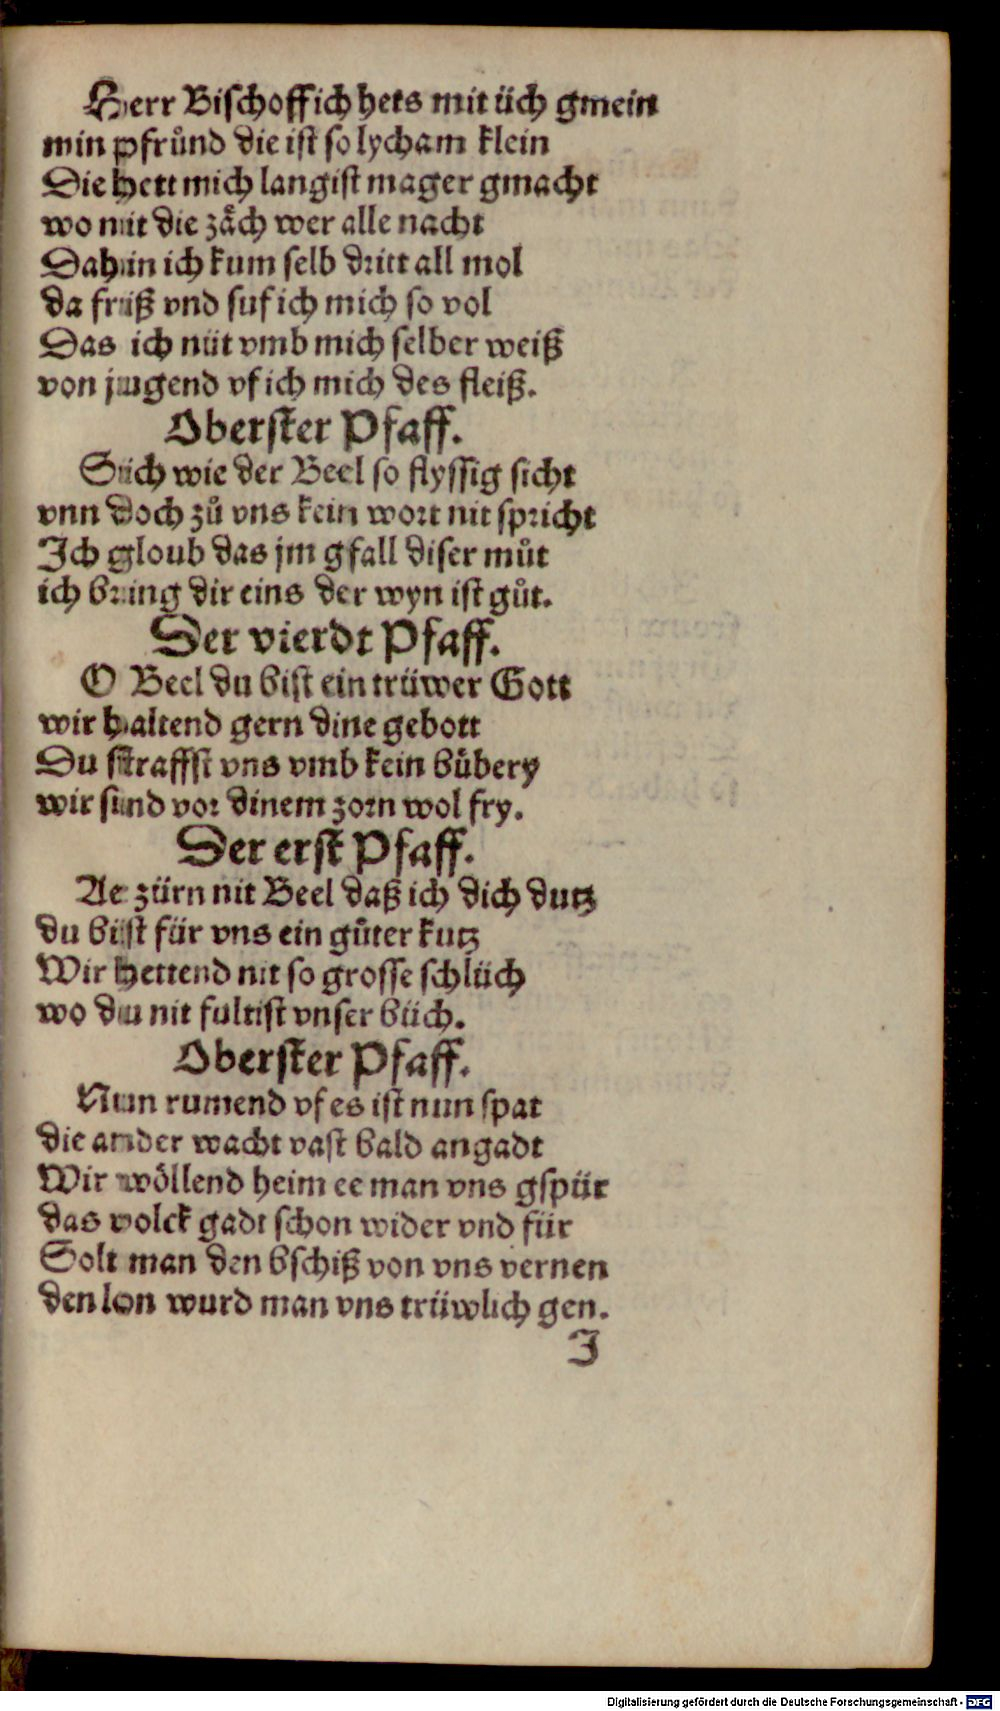 Herr Bischoff ich hets mit üch gmein
min pfruͦnd die ist so lycham klein
Die hett mich langist mager gmacht
wo nit die zaͤch wer alle nacht
Dahin ich kum selb dritt all mol
da friß vnd suf ich mich so vol
Das ich nüt vmb mich selber weiß
von jugend vf ich mich des fleiß.
Oberster Pfaff.
Sich wie der Beel so flyssig sicht
vnn doch zuͦ vns kein wort nit spricht
Ich gloub das jm gfall diser muͦt
ich bring dir eins der wyn ist guͦt.
Der vierdt Pfaff.
O Beel du bist ein trüwer Gott
wir haltend gern dine gebott
Du straffst vns vmb kein buͤbery
wir sind vor dinem zorn wol fry.
Der erst Pfaff.
Ae zürn nit Beel daß ich dich dutz
du bist für vns ein guͦter kutz
Wir hettend nit so grosse schlüch
wo du nit fultist vnser büch.
Oberster Pfaff.
Nun rumend vf es ist nun spat
die ander wacht vast bald angadt
Wir woͤllend heim ee man vns gspür
das volck gadt schon wider vnd für
Solt man den bschiß von vns vernen
den lon wurd man vns trüwlich gen.
J
Digitalisierung gefördert durch die Deutsche Forschungsgemeinschaft - DFG